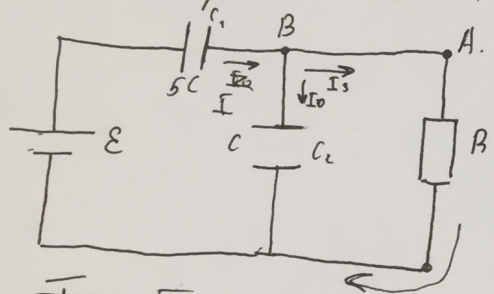 C₁
B
A.
5C
I
I₀
I₃
ε
C
C₂
R